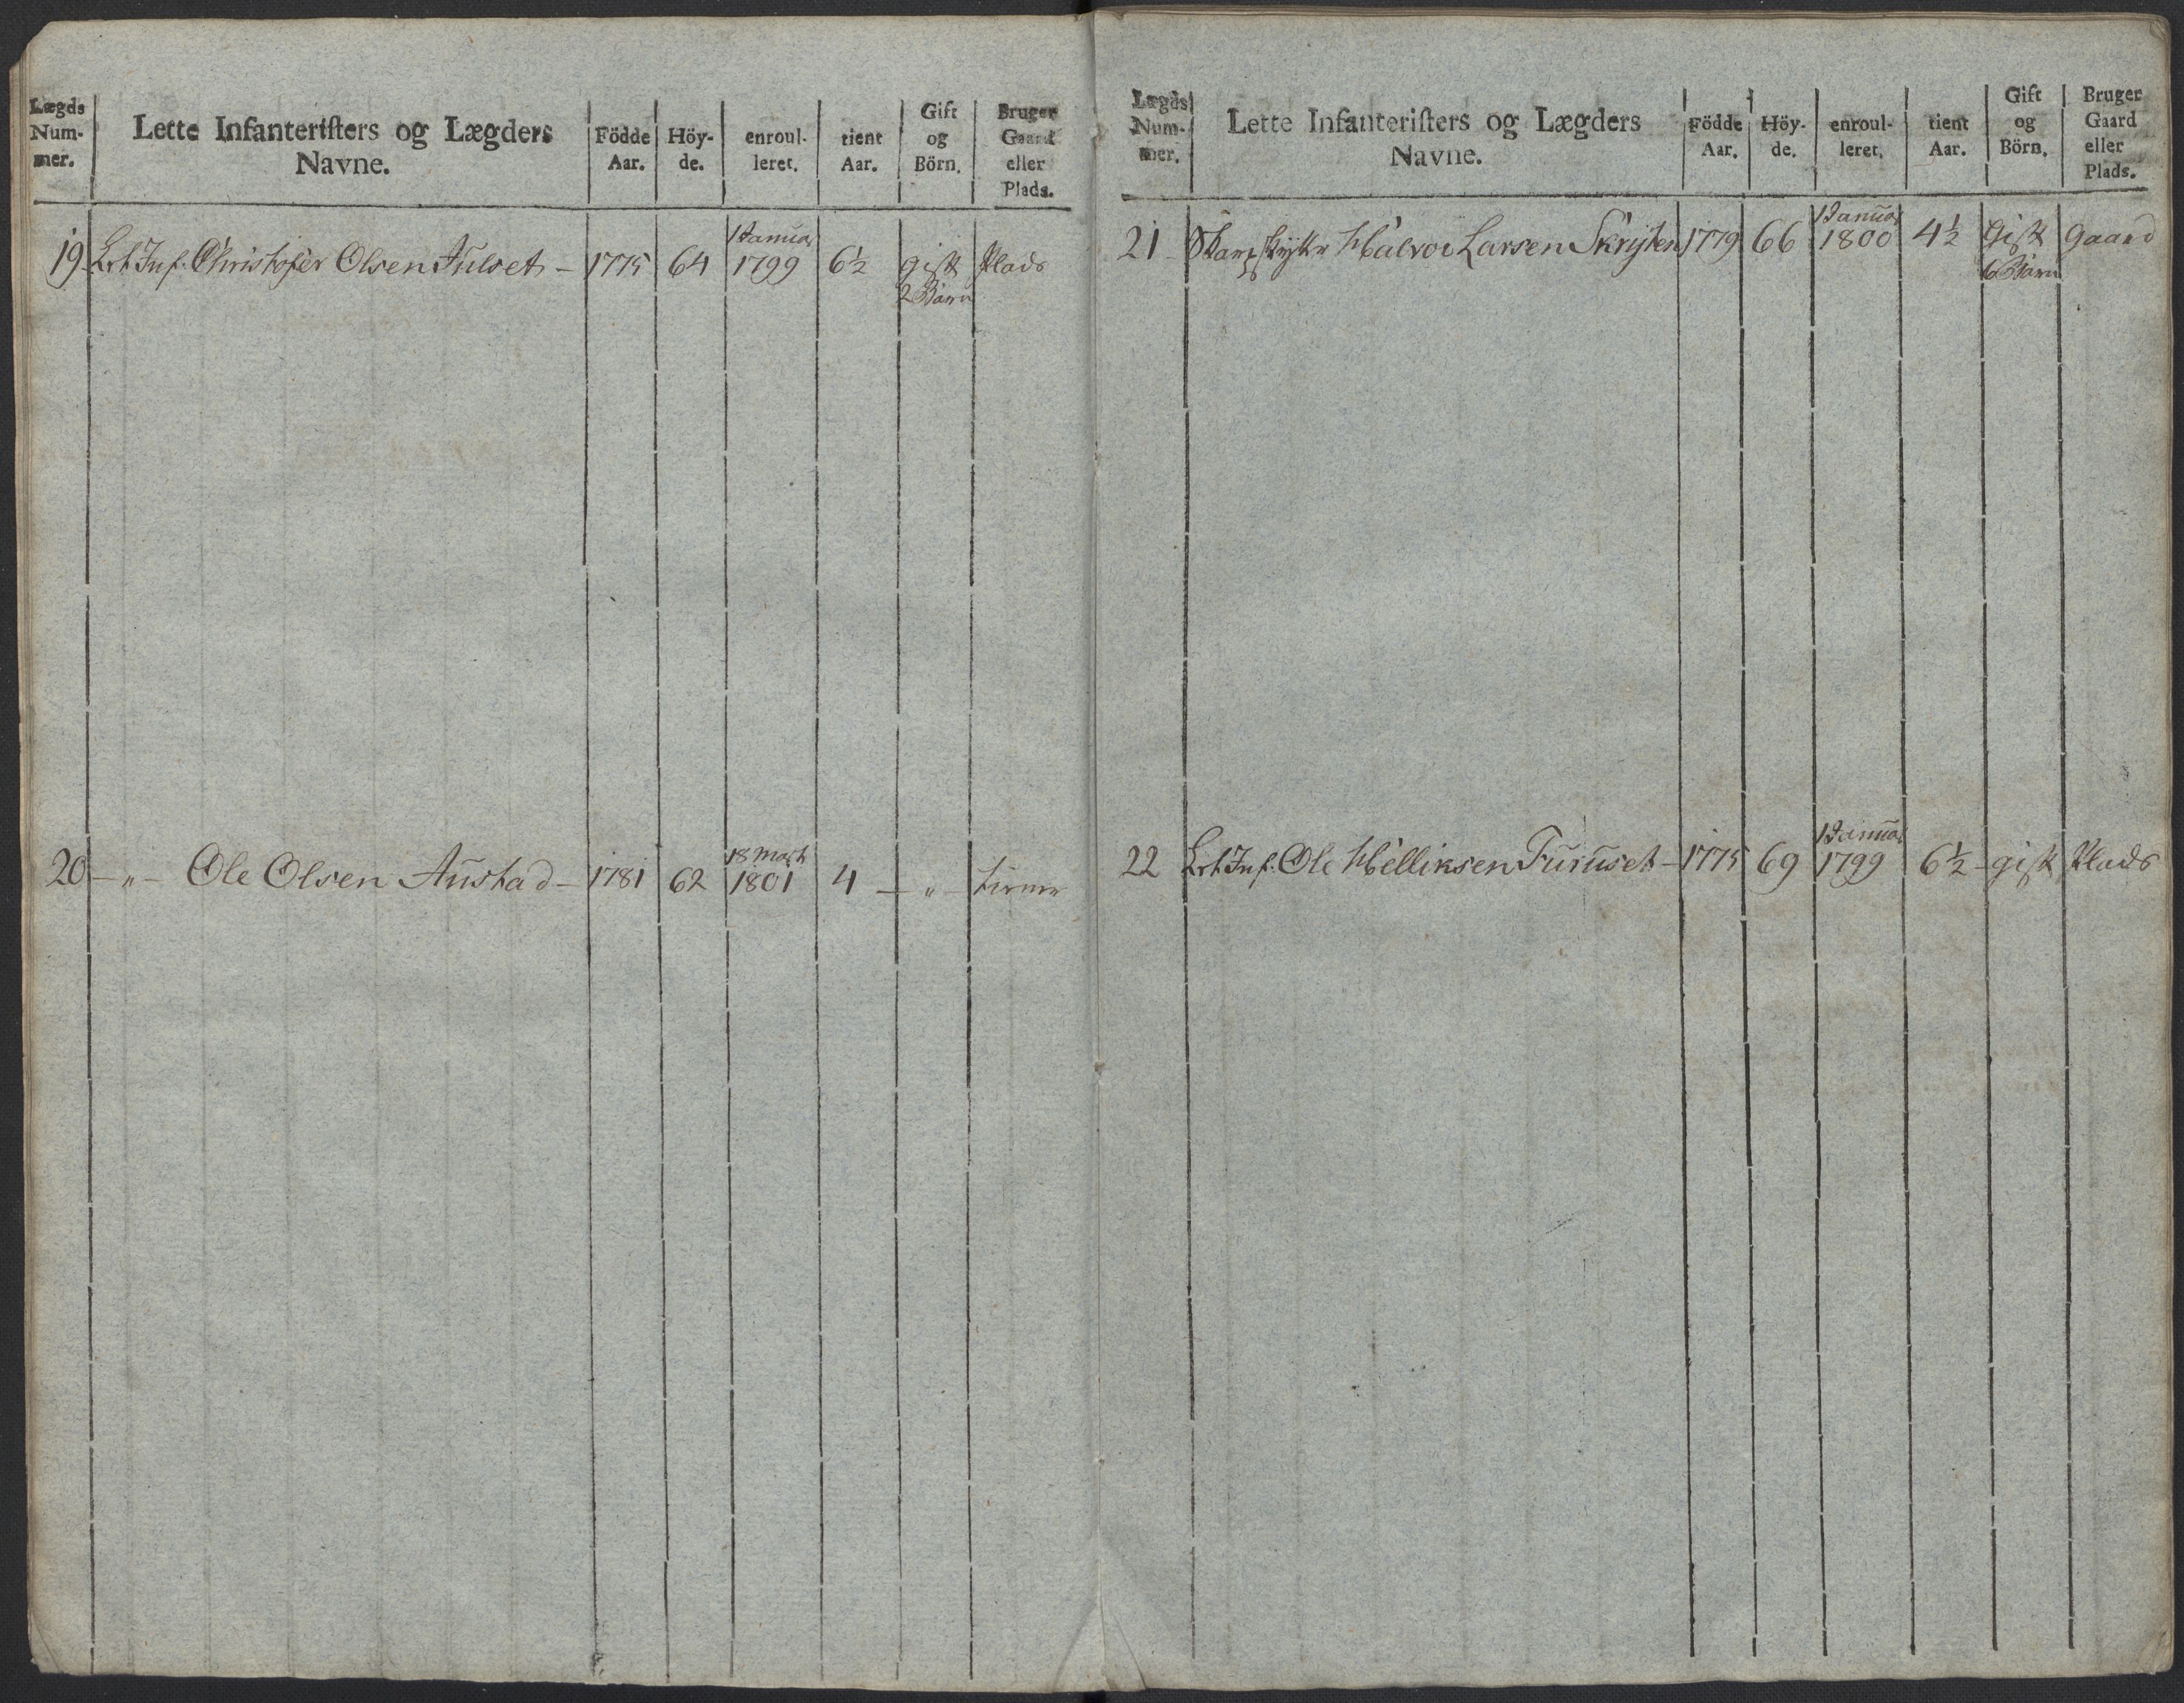 Lægds Num- mer. | Lette Infanteristers og Lægders Navne. | Födde Aar. | Höy- de. | enroul- leret. | tient Aar. | Gift og Börn. | Bruger Gaard eller Plads.
1 Januar
19 Let Inf. Christopher Olsen Julset - 1775 64 1799 6½ gift Plads
2 Børn
18 Mart
20 - " - Ole Olsen Austad - 1781 62 1801 4 - " - tiener
Lægds Num- mer. | Lette Infanteristers og Lægders Navne. | Födde Aar. | Höy- de. | enroul- leret. | tient Aar. | Gift og Börn. | Bruger Gaard eller Plads.
1 Januar
21 Skarpskytter Halvor Larsen 1779 66 1800 4½ Gift Gaard
6 Børn
1 Januar
22 Let Inf. Ole Helliksen Furuset - 1775 69 1799 6½ - gift Plads